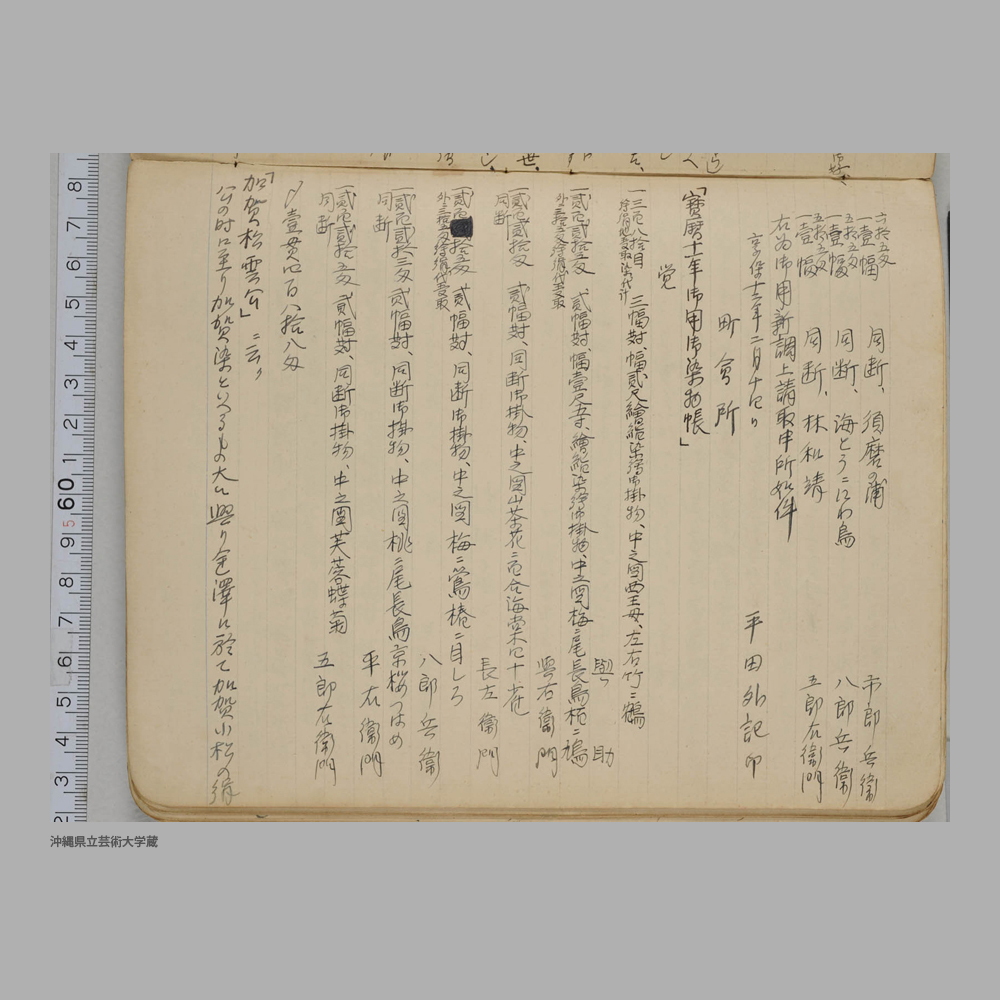 六拾五匁
一壹幅　同断、須磨の浦　市郎兵衛
五拾五匁
一壹幅　同断、海とうニにわ鳥　八郎兵衛
五拾五匁
一壹幅　同断、林和靖　五郎右衛門
右為御用新調上請取申所如件
享保十二年二月十四日　平田外記印
町会所
「寶暦十一年御用御染物帳」
覚
一三百八拾目　三幅対、幅貳尺繪絹染繪御掛物、中之図西王母、左右竹ニ鶴　與助
一貳百貳拾五匁　貳幅対、幅壹尺五寸、繪絹染繪御掛物、中之図梅ニ尾長鳥桃ニ鳩　與右衛門
一貳百貳拾匁　貳幅対、同断御掛物、中之図山茶花ニ百合海棠ニ　長左衛門
同断
一貳百拾五匁　貳幅対、同断御掛物、中之図梅ニ鶯椿ニ目しろ　八郎兵衛
一貳百貳拾三匁　貳幅対、同断御掛物、中之図桃ニ尾長鳥京桜つはめ　平右衛門
同断
一貳百貳拾五匁　貳幅対、同断御掛物、中之図芙蓉蝶菊　五郎右衛門
同断
〆壹貫四百八拾八匁
「加賀松雲公」ニ云ク
公の時に至り加賀染といへるもの大に興り金澤に於て加賀小松の絹
沖縄県立芸術大学蔵